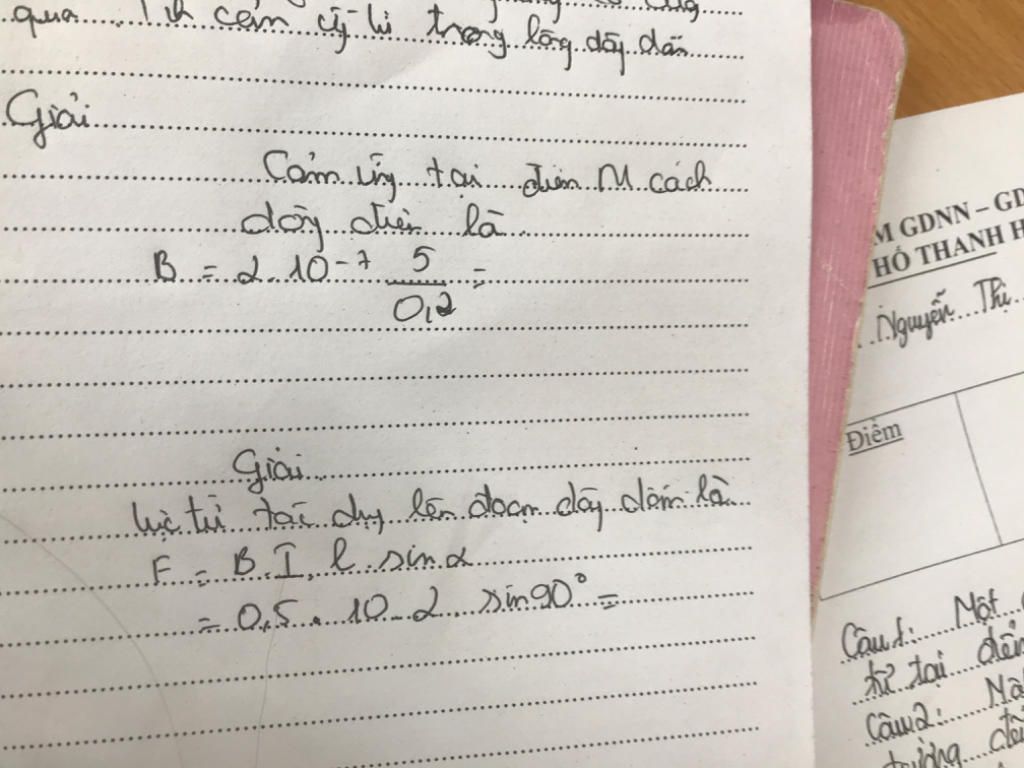 qua... Tính cảm ứ từ trong lòng dây dẫn
Giải
Cảm ứng tại điểm M cách
dòng điện là
B = 2.10-7 5/0,2 =
Giải
lực từ tác dụng lên đoạn dây dẫn là
F = B.I.l sinα
= 0,5 . 10 . 2 sin90° =
M GDNN – GD
HỒ THANH H
Nguyễn Thị
Điểm
Câu 1: Một
từ tại điểm
Câu 2: Một
trường đề